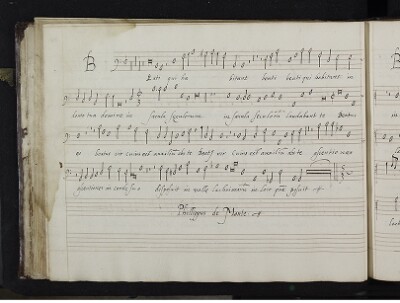 B
Eati qui ha bitant beati beati qui habitant in
domo tua domine in secula seculorum in secula seculorum laudabunt te Beatus
es beatus vir cuius est auxilium abs te beatus vir cuius est auxilium abs te ascensiones
ascensiones in corde suo disposuit in valle lachrimarum in loco quem posuit
Philippus de Monte